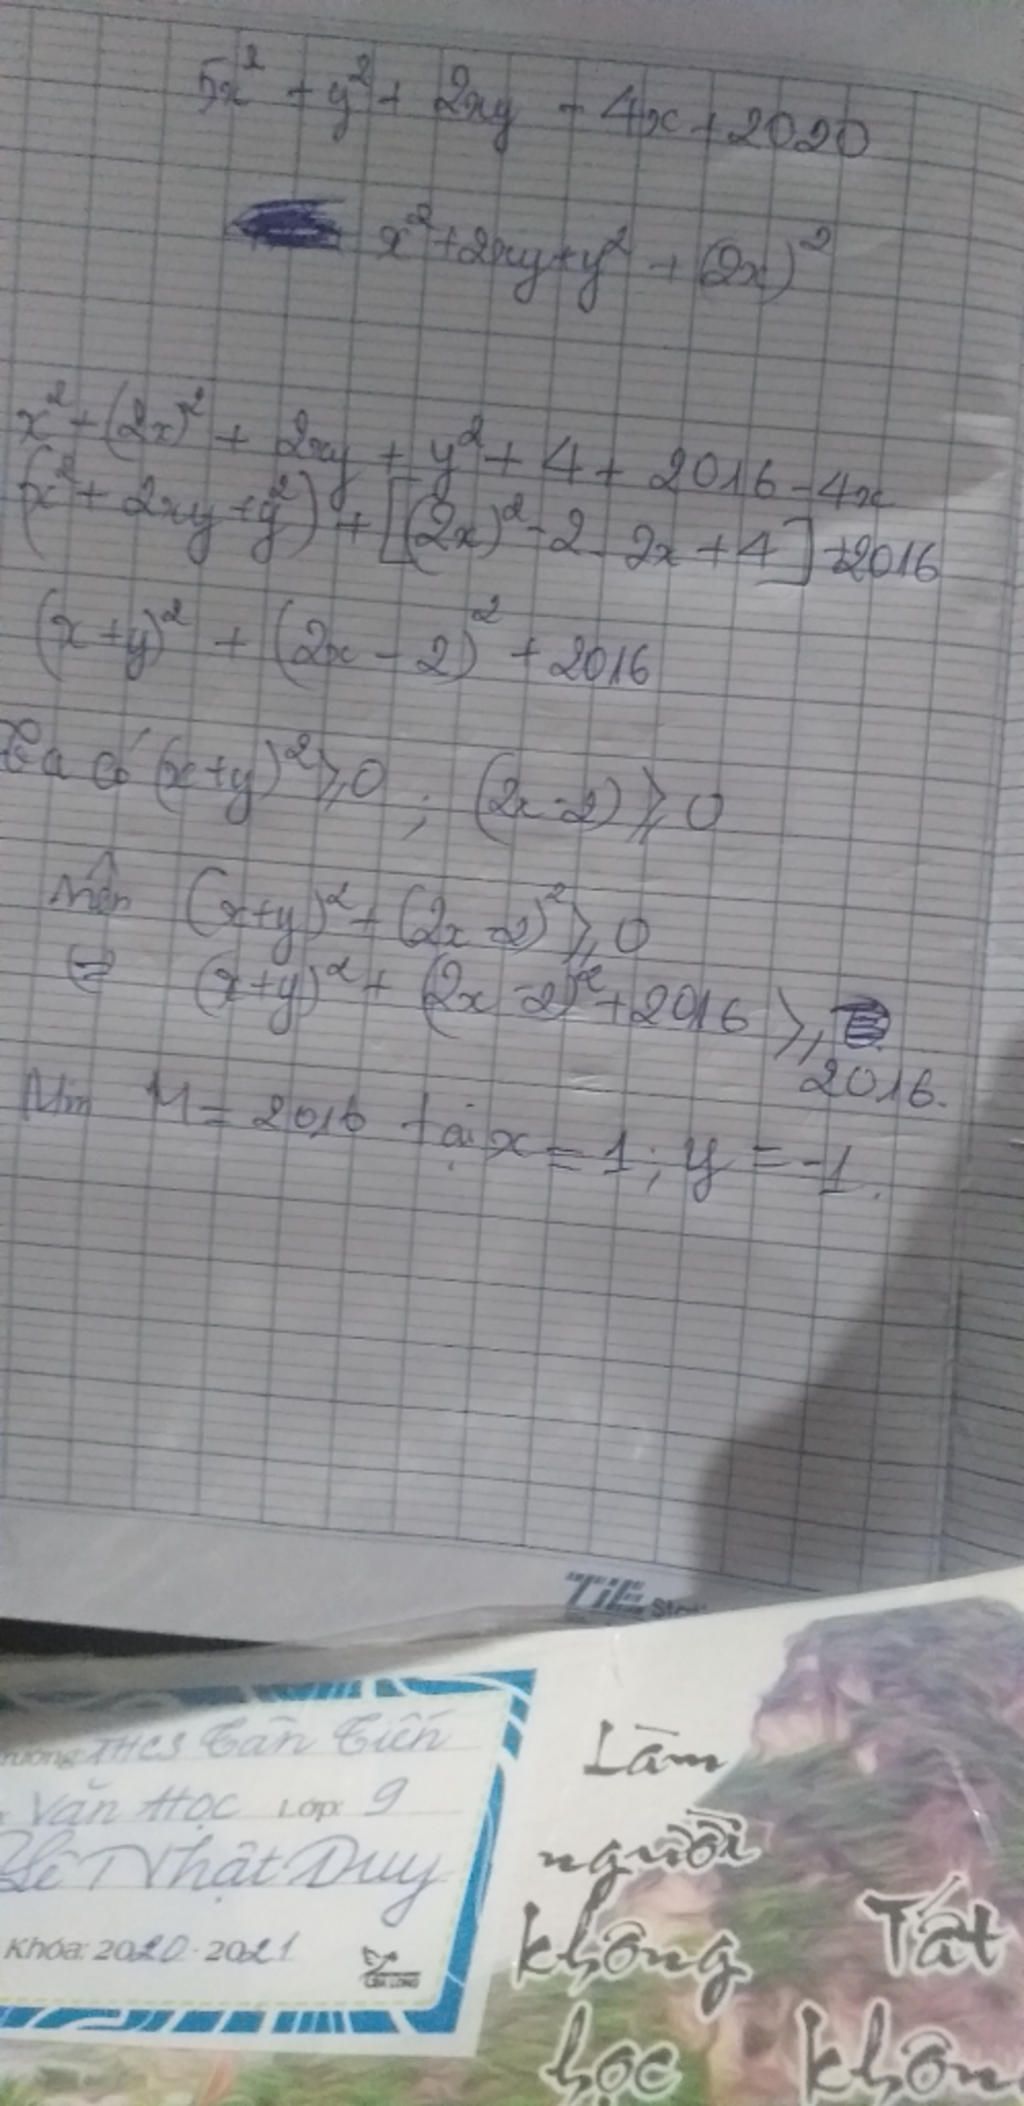 5x² + y² + 2xy - 4x + 2020
x² + 2xy + y² + (2x)²
x² + (2x)² + 2xy + y² + 4 + 2016 - 4x
(x² + 2xy + y²) + [(2x)² - 2 . 2x + 4] + 2016
(x + y)² + (2x - 2)² + 2016
Ta có (x+y)² ≥ 0 ; (2x - 2) ≥ 0
Nên (x+y)² + (2x - 2)² ≥ 0
(x+y)² + (2x - 2)² + 2016 ≥
2016.
Min M = 2016 tại x = 1 ; y = -1.
TiE
THCS Tân Tiến
Văn Học Lớp: 9
Lê Nhật Duy
Khóa: 2020 - 2021
Làm
người
không
học
Tất